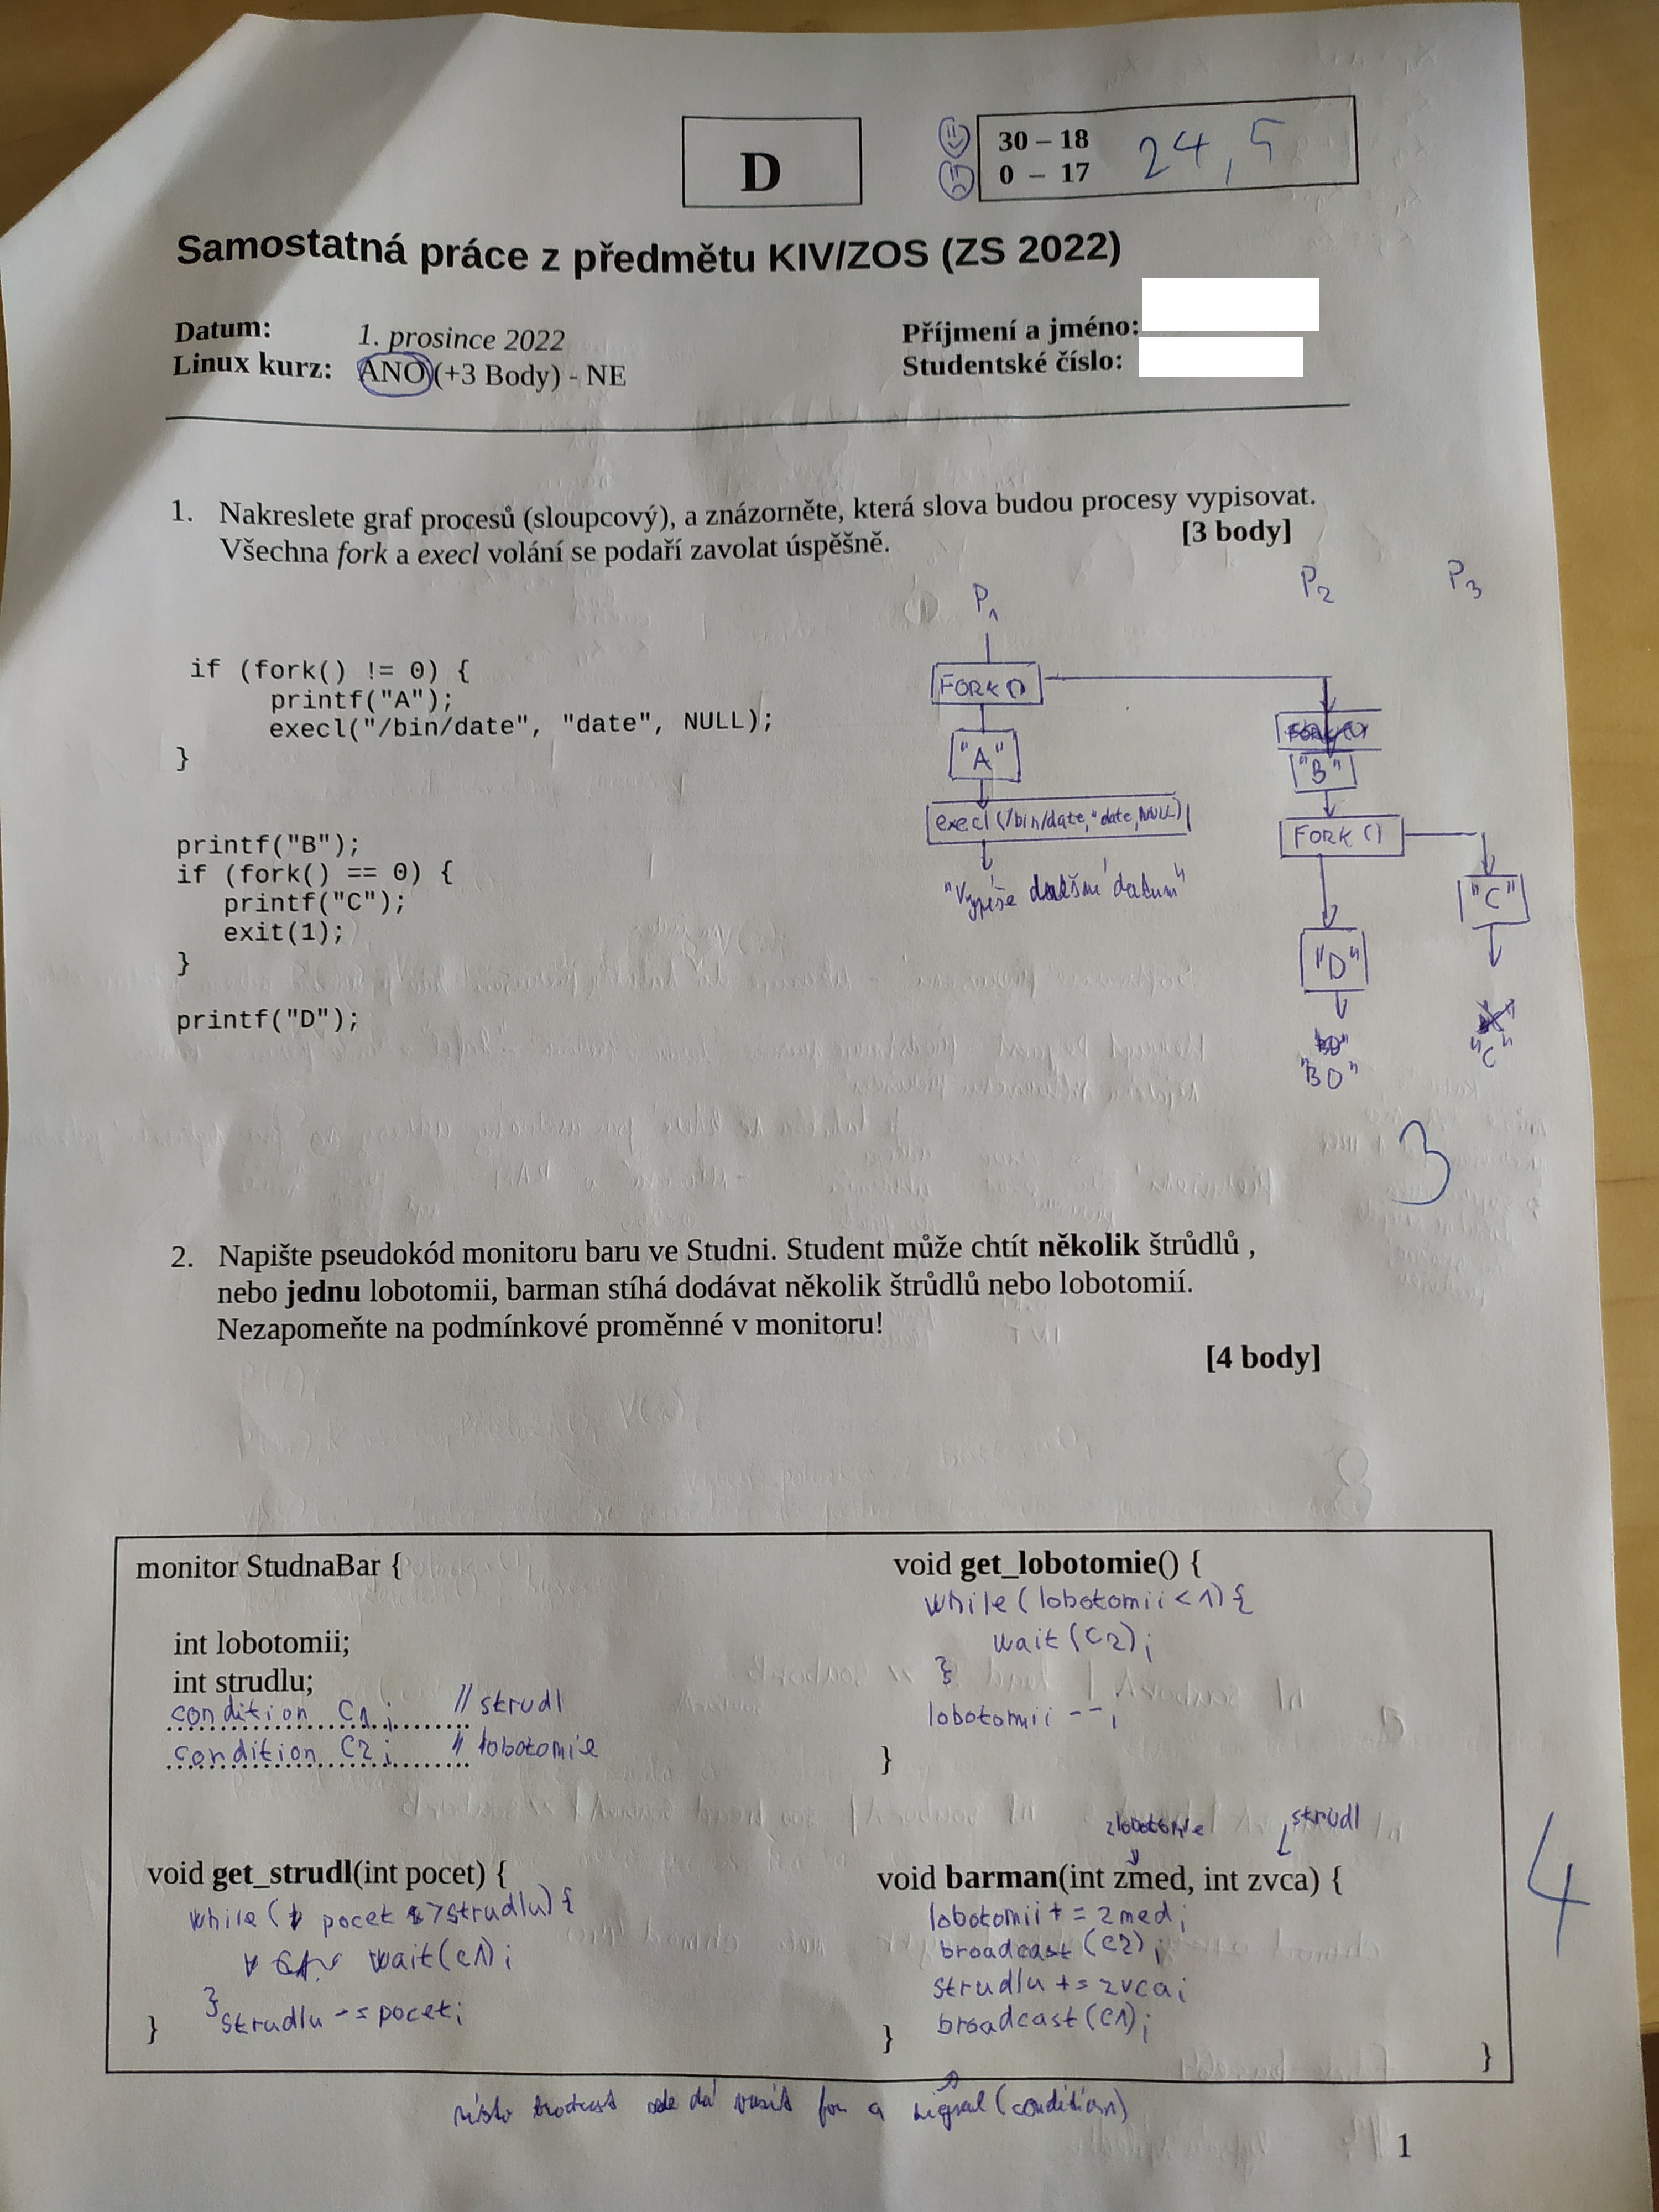 D
30 – 18
0 – 17
24,5
Samostatná práce z předmětu KIV/ZOS (ZS 2022)
Datum: 1. prosince 2022
Linux kurz: ANO (+3 Body) - NE
Příjmení a jméno:
Studentské číslo:
1. Nakreslete graf procesů (sloupcový), a znázorněte, která slova budou procesy vypisovat.
Všechna fork a execl volání se podaří zavolat úspěšně.
[3 body]
if (fork() != 0) {
printf("A");
execl("/bin/date", "date", NULL);
}
printf("B");
if (fork() == 0) {
printf("C");
exit(1);
}
printf("D");
P1
P2
P3
FORK()
"A"
execl(/bin/date,"date,NULL)
"Vypíše datum"
"B"
FORK()
"D"
"BD"
"C"
"C"
3
2. Napište pseudokód monitoru baru ve Studni. Student může chtít několik štrůdlů ,
nebo jednu lobotomii, barman stíhá dodávat několik štrůdlů nebo lobotomií.
Nezapomeňte na podmínkové proměnné v monitoru!
[4 body]
monitor StudnaBar {
int lobotomii;
int strudlu;
condition C1; // strudl
condition C2; // lobotomie
void get_lobotomie() {
while(lobotomii < 1){
wait(C2);
}
lobotomii --;
}
void get_strudl(int pocet) {
while( pocet > strudlu){
wait(C1);
}
strudlu -= pocet;
}
lobotomie
strudl
void barman(int zmed, int zvca) {
lobotomii += zmed;
broadcast(C2);
strudlu += zvca;
broadcast(C1);
}
}
4
místo broadcast dá for a signal(condition)
1